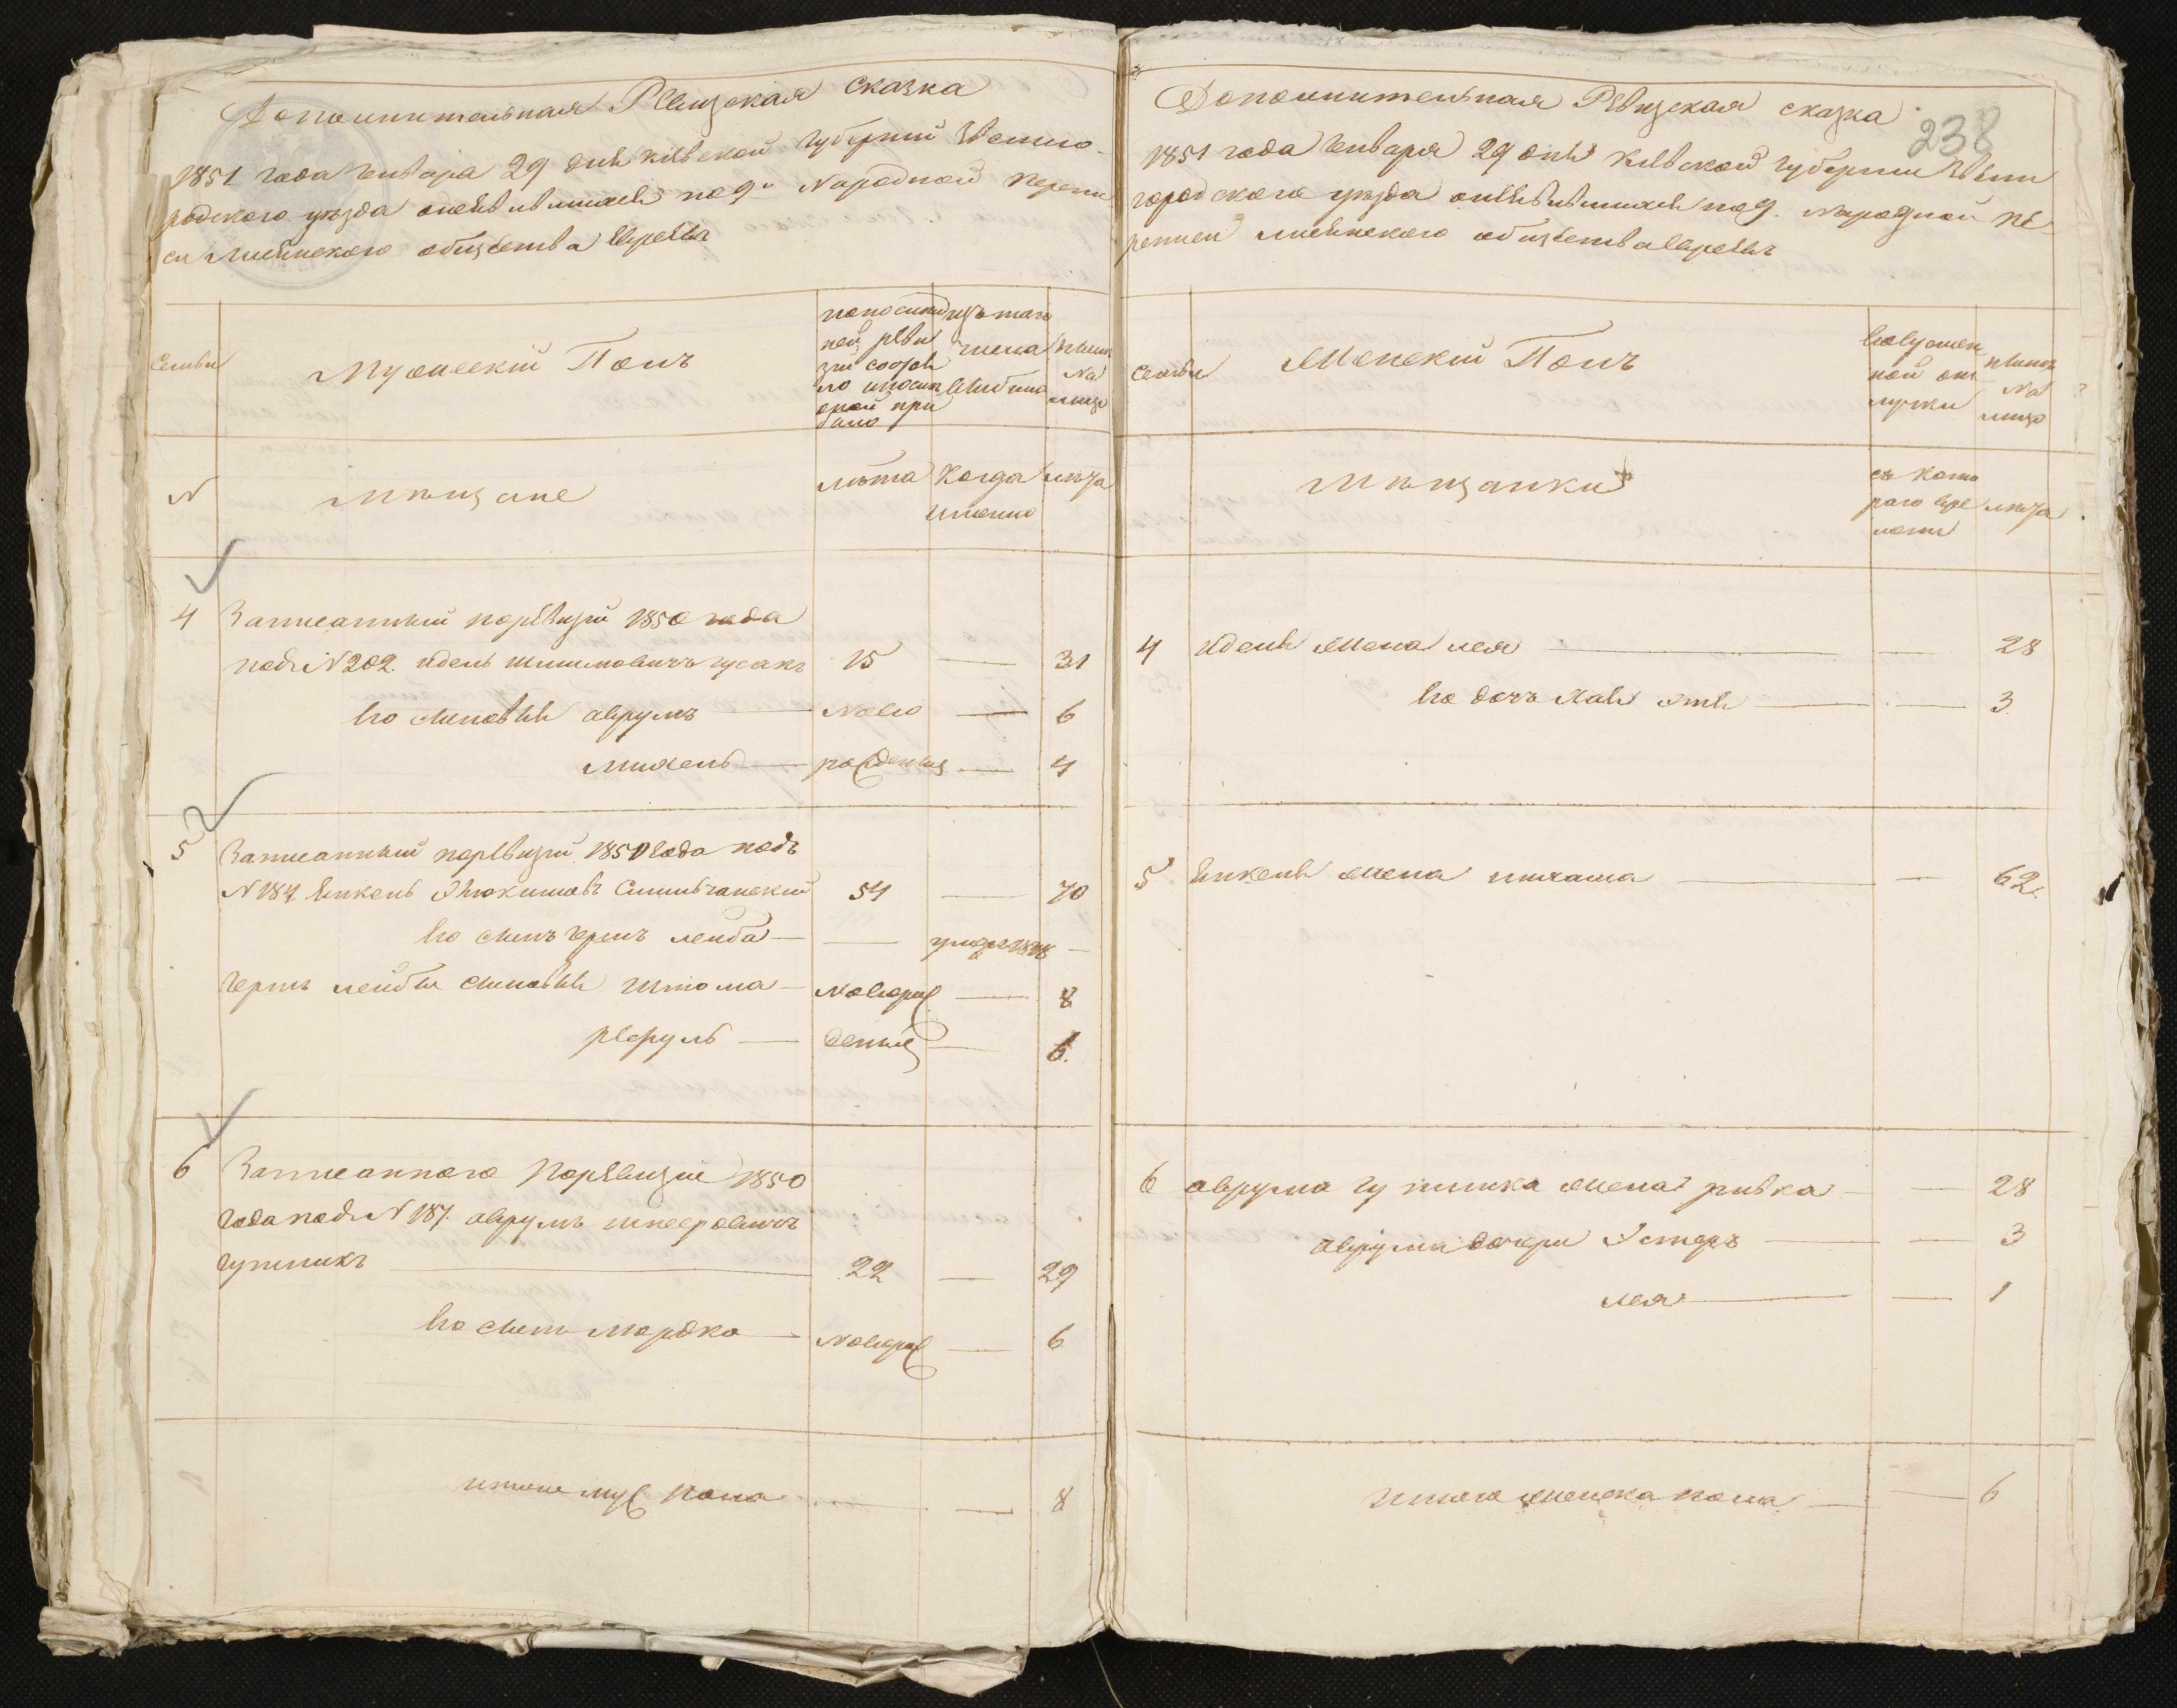 Дополнительная Ревизская сказка
1851 года Генваря 29 дня Киевской Губернии Звениго-
родского уезда оневившихся по 9й Народной перепи
си Лисянского общества Евреевъ
Семьи
Мужескій Полъ
по последней ревизіи состояло и после оной прибыло
изъ того числа выбыло
ныне на лицо
N
Мещане
лета
Когда именно
лета
4 Записанный по ревизіи 1850 года
подъ N 202. Идель Шимоновичъ Гусакъ 15 — 31
Его сыновья Аврумъ — Ново — 6
Михель — рожденныя — 4
5 Записанный по ревизіи 1850 года подъ
N 184. Янкель Сминчанскій 54 — 70
Его сынъ Гершъ Лейба — — умеръ 1848 —
Гершъ Лейбы сыновья Шлома — Новорож — 8
— денные — 6.
6 Записаннаго по ревизіи 1850
года подъ N 187. Аврумъ
Гутникъ — 22 — 29
Его сынъ Мордко — Новорож — 6
Итого муж пола — 8
238
Дополнительная Ревизская сказка
1851 года Генваря 29 дня Киевской Губернии Звени
городского уезда оневившихся по 9. Народной пе
реписи Лисянского общества Евреевъ
Семьи
Женскій Полъ
во временной отлучки
ныне на лицо
Мещанки
съ котораго времени
лета
4 Иделя жена Лея — 28
Его дочь Хая Этя — 3
5 Янкеля жена — 62.
6 Аврума Гутника жена Ривка — 28
Аврума дочери Эстеръ — 3
Лея — 1
Итого женска пола — 6